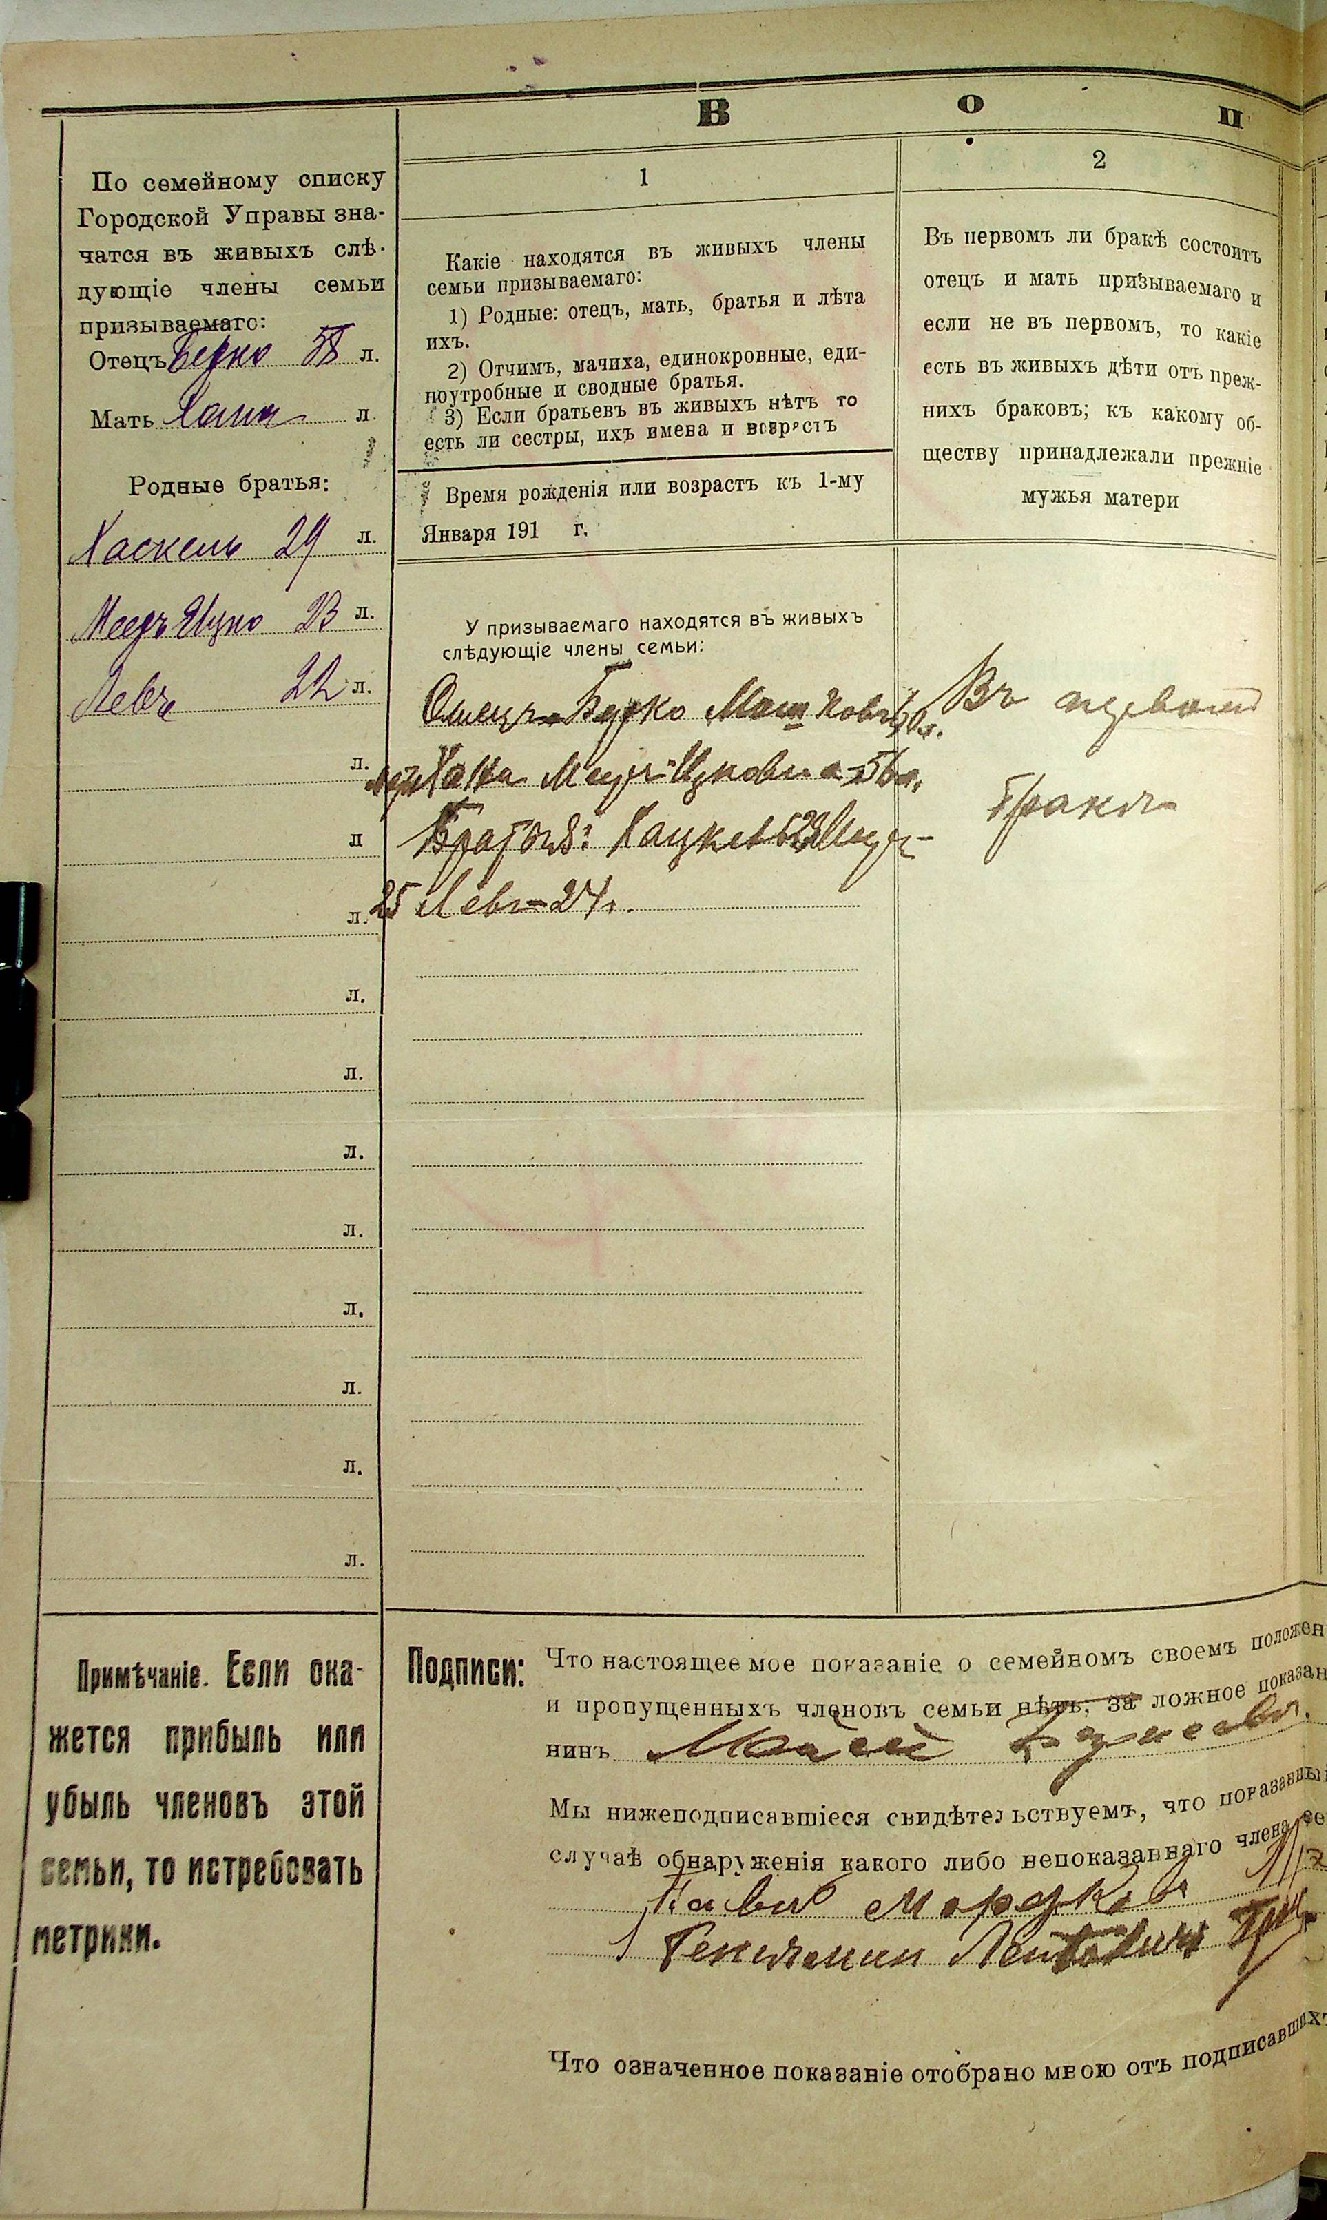 В о п
По семейному списку
Городской Управы зна-
чатся въ живыхъ слѣ-
дующіе члены семьи
призываемаго:
Отецъ Берко 58 л.
Мать Хана л.
Родные братья:
Хаскель 29 л.
Мееръ Ицко 23 л.
Левъ 22 л.
л.
л
л.
л.
л.
л.
л.
л.
л.
л.
л.
1
Какіе находятся въ живыхъ члены
семьи призываемаго:
1) Родные: отецъ, мать, братья и лѣта
ихъ.
2) Отчимъ, мачиха, единокровные, еди-
поутробные и сводные братья.
3) Если братьевъ въ живыхъ нѣтъ то
есть ли сестры, ихъ имена и возрастъ
Время рожденія или возрастъ къ 1-му
Января 191 г.
У призываемаго находятся въ живыхъ
слѣдующіе члены семьи:
Отецъ Берко Мошковъ л.
Хана Меуръ-Ицковна-56 л.
Братья: Хацкель 29 Меуръ-
25 Левъ-24.
2
Въ первомъ ли бракѣ состоитъ
отецъ и мать призываемаго и
если не въ первомъ, то какіе
есть въ живыхъ дѣти отъ преж-
нихъ браковъ; къ какому об-
ществу принадлежали прежніе
мужья матери
Въ первомъ
бракѣ
Примѣчаніе. Если ока-
жется прибыль или
убыль членовъ этой
семьи, то истребовать
метрики.
Подписи:
Что настоящее мое показаніе о семейномъ своемъ положен
и пропущенныхъ членовъ семьи нѣтъ, за ложное показан
нинъ Мойсей
Мы нижеподписавшіеся свидѣтельствуемъ, что показанны
случаѣ обнаруженія какого либо непоказаннаго члена се
Мордков
Бениямин Лейбович
Что означенное показаніе отобрано мною отъ подписавшихъ